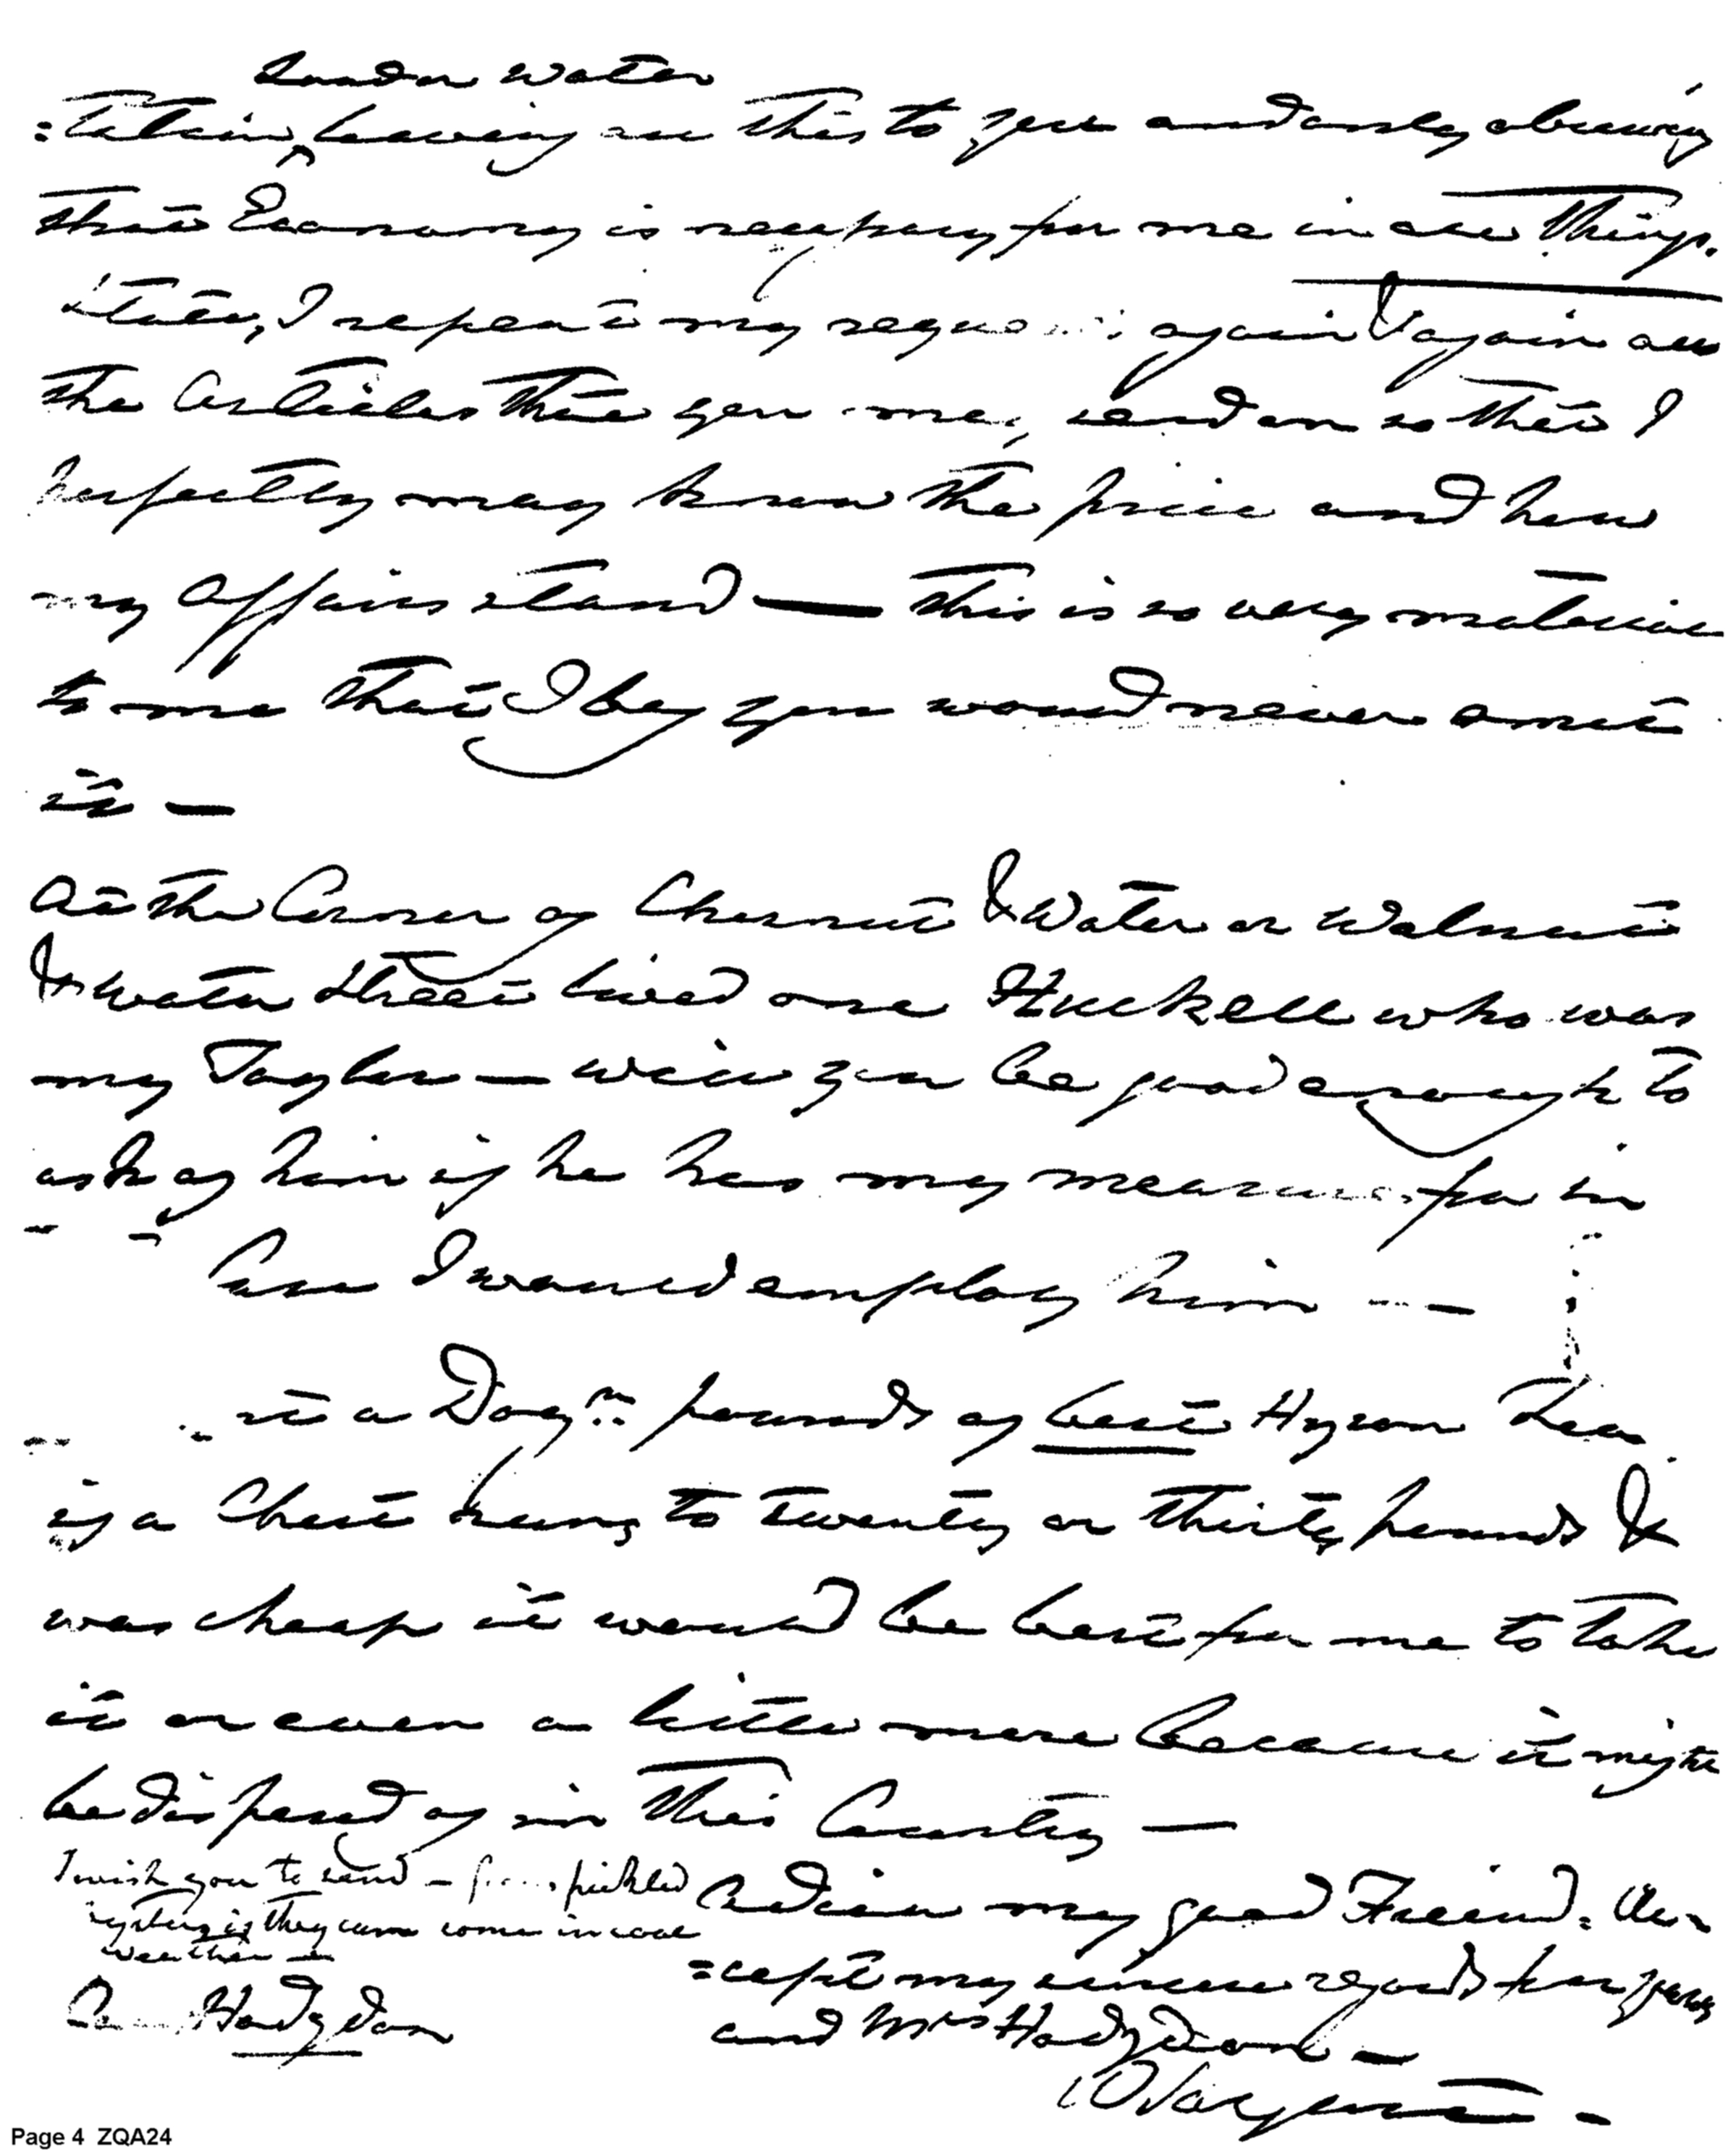 under water
:tation, leaving all this to you and only observing
that Economy is necessary for me in all Things.
State, I repeat my request again & again all
the Articles that you may send on so that I
perfectly may know the price and how
my affairs stand — this is so very material
to me that I beg you would never omit
it —
At the Corner of Chesnut & Water or Walnut
& Water Street lived one Huckell who was
my Taylor — will you be good enough to
ask of him if he has my measures for in
Case I would employ him —
a Dozn pounds of best Hyson Tea
if a Chest rung to twenty or thirty pounds &
was cheap it would be best for me to take
it or even a little more because it might
be disposed of in this Country —
I wish you to send — pickled
oysters if they can come in cool
weather —
Adieu my good Friend. Ac-
=cept my sincere regards for you
and Mrs Hodgdon —
Hodgdon
Page 4 ZQA24